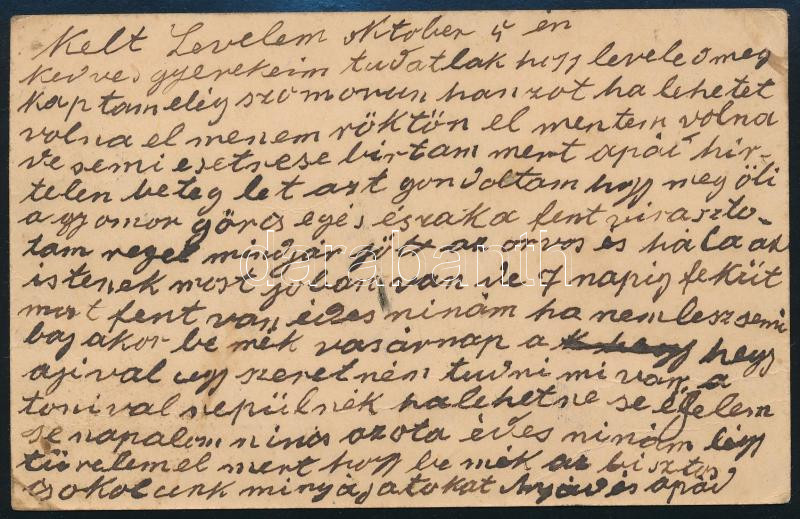 Kelt Levelem oktober 5 én
kedves gyerekeim tudatlak hogy leveled meg
kaptam elég szomorun hanzot ha lehetet
volna el menem röktön el mentem volna
de semi esetrese birtam mert apád hir-
telen beteg let azt gondoltam hogy meg öli
a gyomor görcs egés északa fent viraszto-
tam regel mingyar jött az orvos és hála az
istenek most jobban van de 7 napig feküt
most fent van édes ninám ha nem lesz semi
baj akor be mék vasárnap a hegy
ajival ugy szeretném tudni mi van a
tonival repülnék ha lehetne se éjelem
se napalom nincs azota édes ninám légy
türelemel mert hogy be mék az bisztos
csokolunk minyájatokat Anyád és apád
darabanth